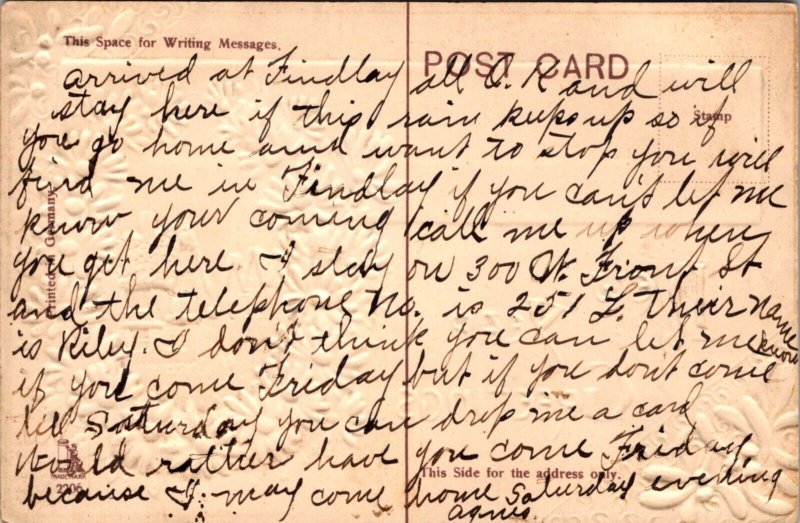 This Space for Writing Messages.
POST CARD
Stamp
arrived at Findlay all O.K and will
stay here if this rain keeps up so if
you go home and want to stop you will
find me in Findlay if you can't let me
know your coming call me up when
you get here. I stay on 300 W. Front St
and the telephone No. is 251 L. Their name
is Riley. I don't think you can let me know
if you come Friday but if you dont come
till Saturday you can drop me a card
Would rather have you come Friday
because I may come home Saturday evening
Agnes.
Printed in Germany
This Side for the address only.
TRADE MARK
2206